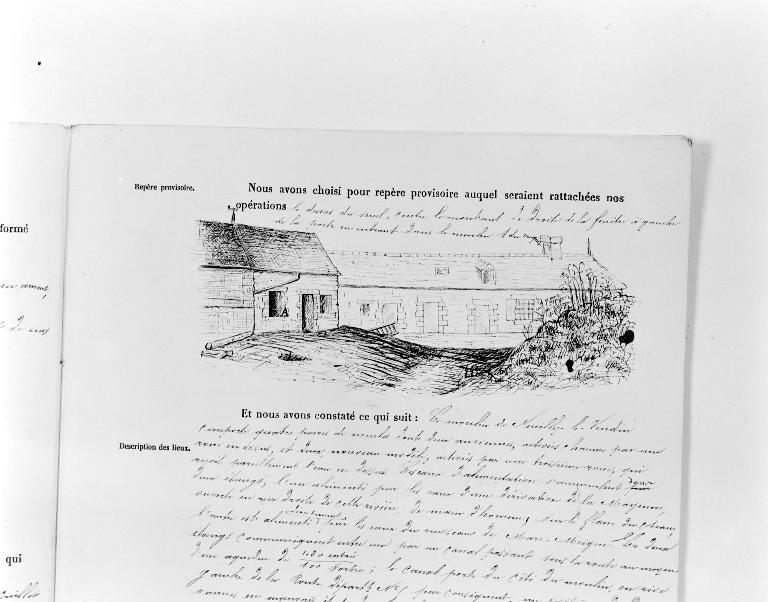 formé
en amont,
de nos
qui
Repère provisoire.
Nous avons choisi pour repère provisoire auquel seraient rattachées nos
opérations le dessus du seuil, contre le montant de droite de la fenêtre à gauche
de la porte en entrant dans le moulin
Et nous avons constaté ce qui suit : Le moulin de Neuilly le Vendin
Description des lieux.
comporte quatre paires de meules dont deux anciennes, activées chacune par une
roue en dessus, et deux nouveau modèle, activées par une troisième roue, qui
reçoit pareillement l'eau en dessus. Les eaux d'alimentation s'accumulent dans
deux étangs, l'un alimenté par les eaux d'une dérivation de la Mayenne,
ouverte en rive droite de cette rivière de main d'homme, sur le flanc du coteau;
l'autre est alimenté par les eaux du ruisseau de
étangs communiquent entre eux par un canal passant sous la route au moyen
d'un aqueduc de ; le canal porte du côté du moulin, en rive
gauche de la Route départ. N° par conséquent, un
vannes en mauvais